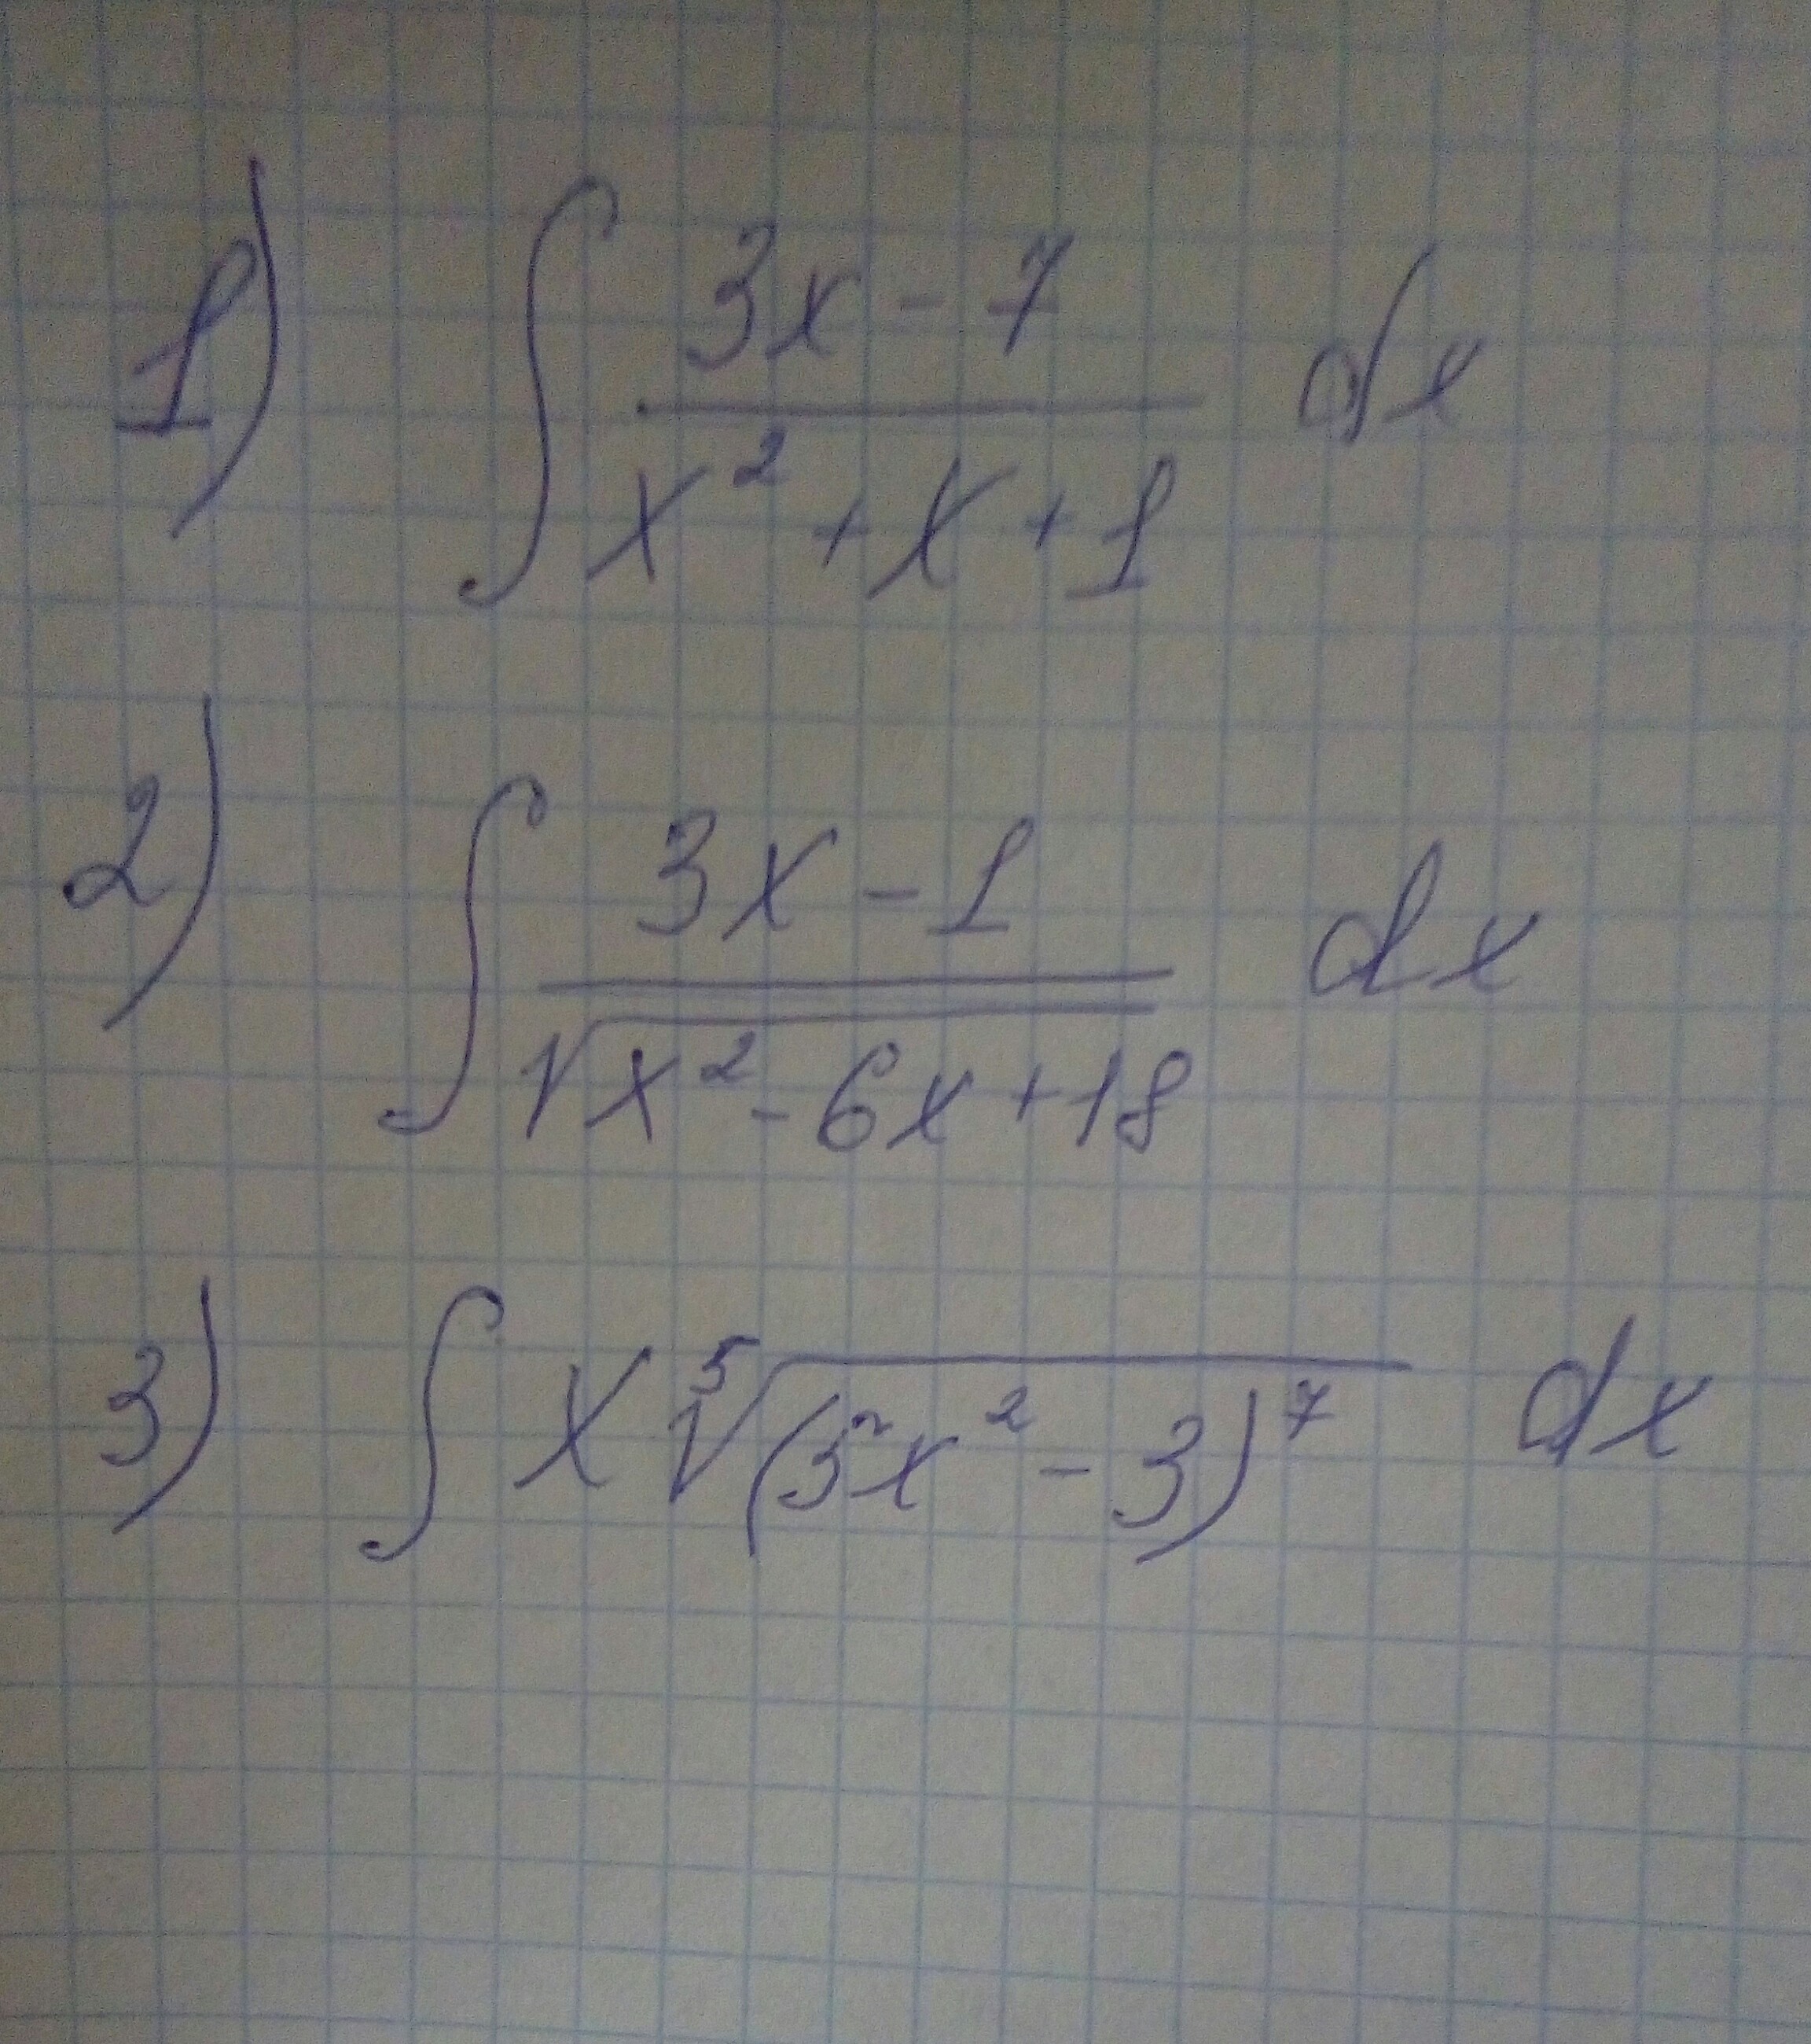 1) ∫ (3x - 7)/(x² + x + 1) dx
2) ∫ (3x - 1)/√(x² - 6x + 18) dx
3) ∫ x ⁵√((5x² - 3)⁷) dx